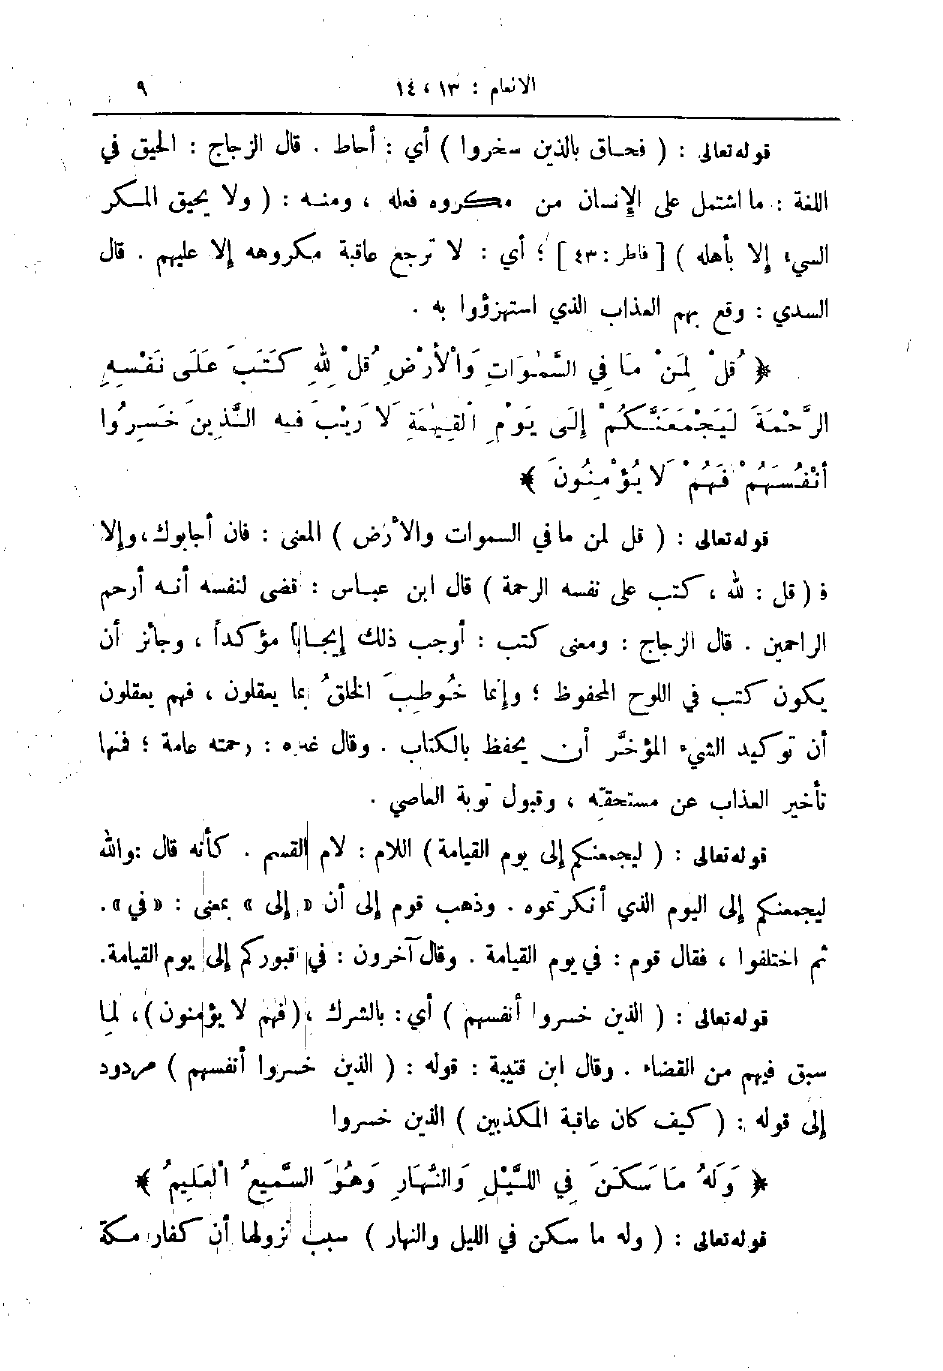 الانعام : ١٣ ، ١٤ ٩
قوله تعالى : ( فحاق بالذين سخروا ) أي : أحاط . قال الزجاج : الحيق في
اللغة : ما اشتمل على الإنسان من مكروه فعله ، ومنه : ( ولا يحيق المكر
السيء إلا بأهله ) [ فاطر : ٤٣ ] ؛ أي : لا ترجع عاقبة مكروهه إلا عليهم . قال
السدي : وقع بهم العذاب الذي استهزؤوا به .
﴿ قُلْ لِمَنْ مَا فِي السَّمٰوَاتِ وَالْأَرْضِ قُلْ لِلّٰهِ كَتَبَ عَلَى نَفْسِهِ
الرَّحْمَةَ لَيَجْمَعَنَّكُمْ إِلَى يَوْمِ الْقِيٰمَةِ لَا رَيْبَ فِيهِ الَّذِينَ خَسِرُوا
أَنْفُسَهُمْ فَهُمْ لَا يُؤْمِنُونَ ﴾
قوله تعالى : ( قل لمن ما في السموات والأرض ) المعنى : فان أجابوك ، وإلا
فـ ( قل : لله ، كتب على نفسه الرحمة ) قال ابن عباس : قضى لنفسه أنه أرحم
الراحمين . قال الزجاج : ومعنى كتب : أوجب ذلك إيجاباً مؤكداً ، وجائز أن
يكون كتب في اللوح المحفوظ ؛ وإنما خُوطِبَ الخلقُ بما يعقلون ، فهم يعقلون
أن توكيد الشيء المؤخَّر أن يحفظ بالكتاب . وقال غيره : رحمته عامة ؛ فمنها
تأخير العذاب عن مستحقيه ، وقبول توبة العاصي .
قوله تعالى : ( ليجمعنكم إلى يوم القيامة ) اللام : لام القسم . كأنه قال : والله
ليجمعنكم إلى اليوم الذي أنكرتموه . وذهب قوم إلى أن « إلى » بمعنى : « في » .
ثم اختلفوا ، فقال قوم : في يوم القيامة . وقال آخرون : في قبوركم إلى يوم القيامة .
قوله تعالى : ( الذين خسروا أنفسهم ) أي : بالشرك ، ( فهم لا يؤمنون ) ، لما
سبق فيهم من القضاء . وقال ابن قتيبة : قوله : ( الذين خسروا أنفسهم ) مردود
إلى قوله : ( كيف كان عاقبة المكذبين ) الذين خسروا
﴿ وَلَهُ مَا سَكَنَ فِي اللَّيْلِ وَالنَّهَارِ وَهُوَ السَّمِيعُ الْعَلِيمُ ﴾
قوله تعالى : ( وله ما سكن في الليل والنهار ) سبب نزولها أن كفار مكة